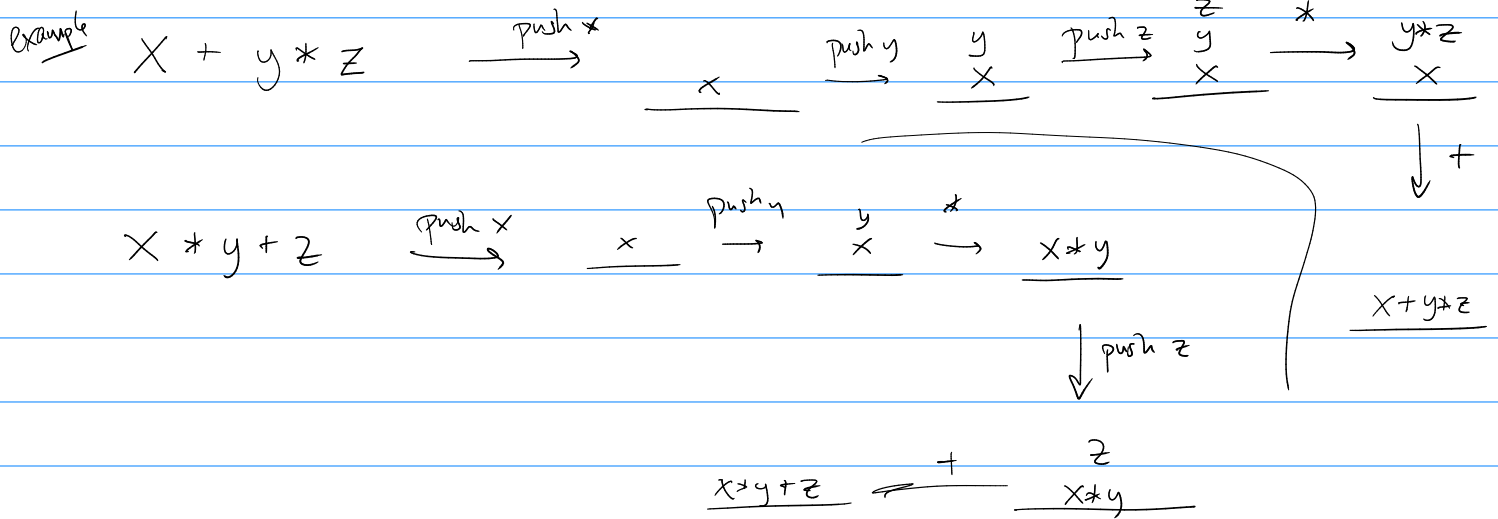 example
x + y * z push x x push y y x push z z y x * y*z x
+
x+y*z
x * y + z push x x push y y x * x*y
push z
z
x*y + x*y+z